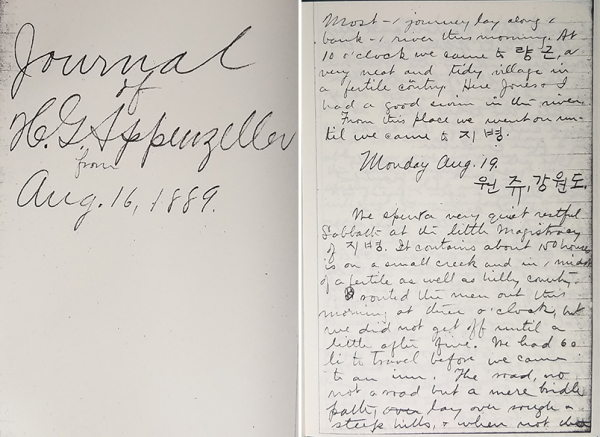 Journal
of
H. G. Appenzeller
from
Aug. 16, 1889.
Most - journey lay along
bank - river this morning. At
10 o'clock we came to 량근, a
very neat and tidy village in
a fertile contry. Here Jones & I
had a good swim in the river.
From this place we went on un-
til we came to 지평.
Monday Aug. 19.
원 쥬, 강원도.
We spent a very quiet restful
Sabbath at the little Magistracy
of 지평. It contains about 150 houses
is on a small creek and in midst
of a fertile as well as hilly country.
I routed the men out this
morning at three o'clock, but
we did not get off until a
little after five. We had 60
li to travel before we came
to an inn. The road, no
not a road but a mere bridle
path, over lay over rough &
steep hills, & when not